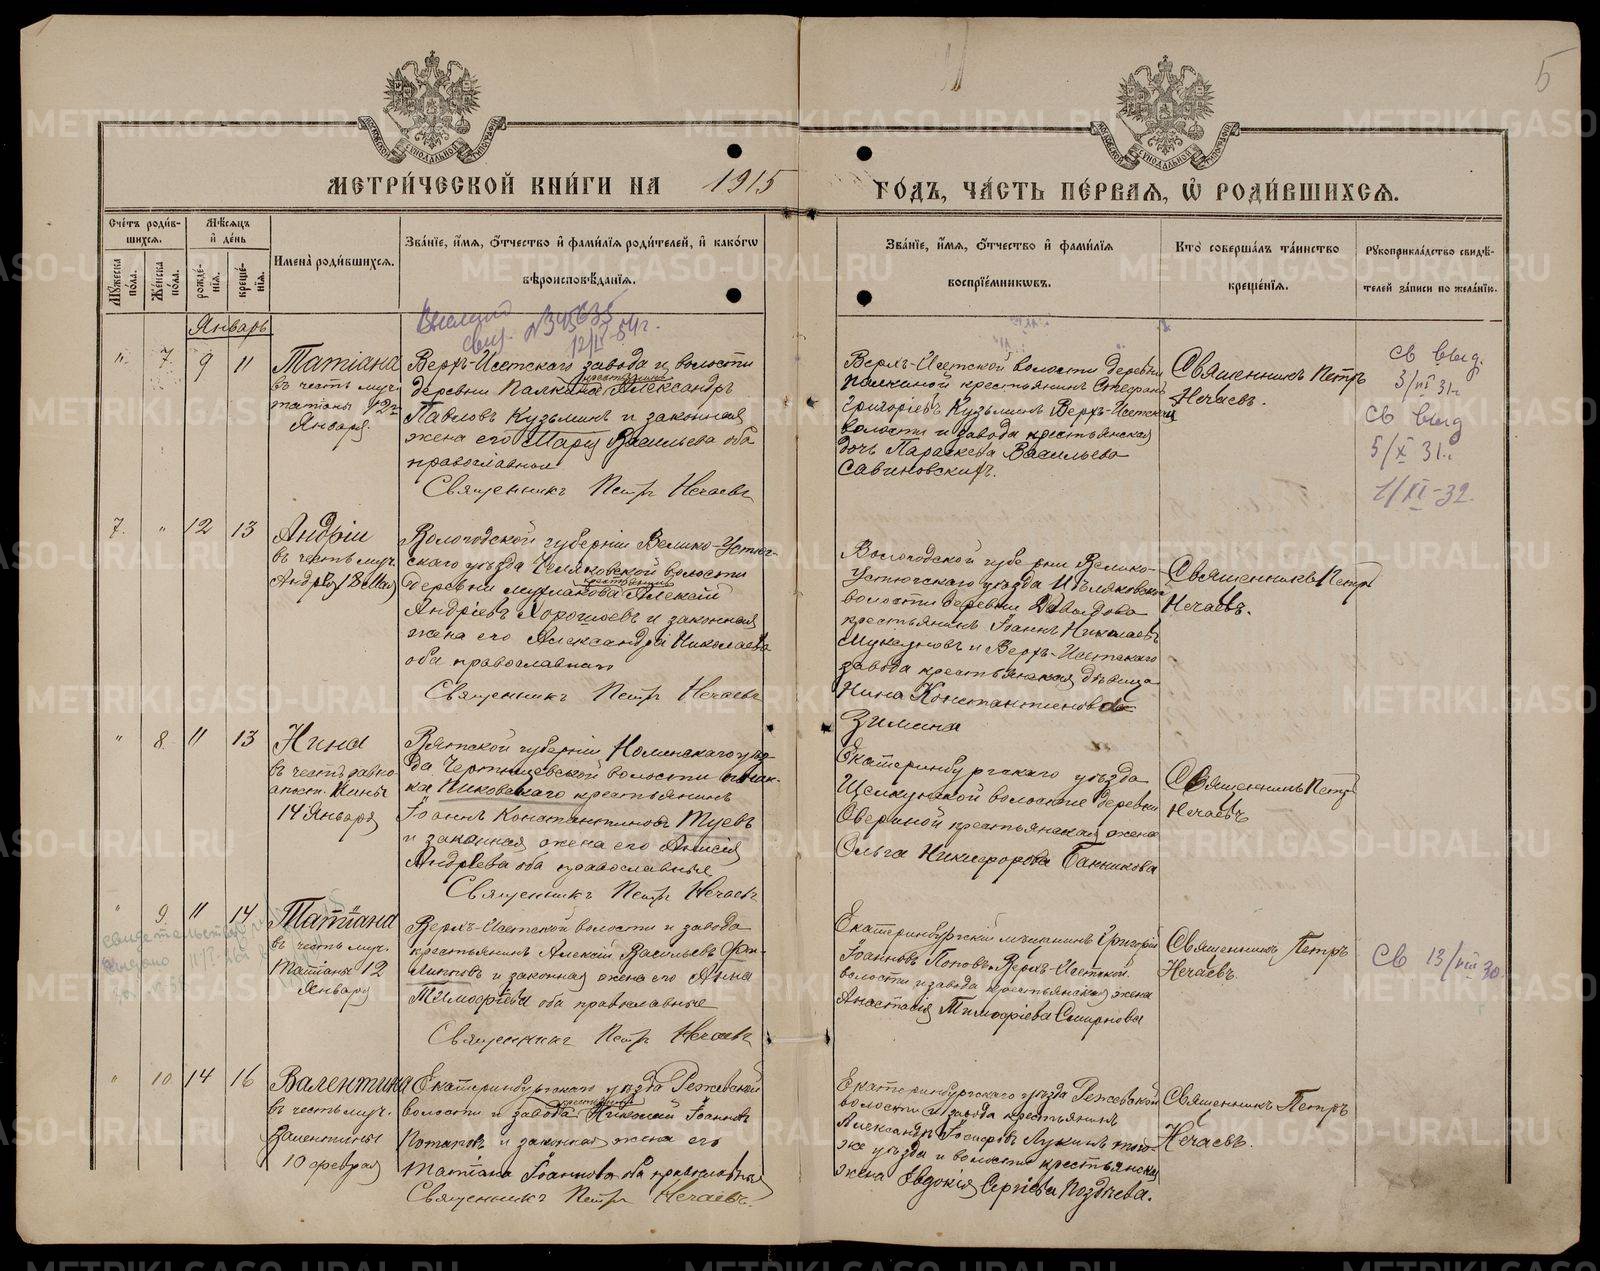 5
МЕТРИ́ЧЕСКОЙ КНИ́ГИ НА 1915 ГО́ДЪ, ЧА́СТЬ ПЕ́РВАЯ, Ѡ РОДИ́ВШИХСЯ.
Счетъ роди́вшихся.
Мужеска по́ла.
Же́нска по́ла.
Мѣсяцъ и де́нь
рожде́нія.
креще́нія.
Имена̀ роди́вшихся.
Зва́ніе, и́мя, о́тчество и фами́лія роди́телей, и како́гѡ
вѣроисповѣ́данія.
Зва́ніе, и́мя, о́тчество и фами́лія
воспріе́мникѡвъ.
Кто̀ соверша́лъ та́инство
креще́нія.
Рукоприкла́дство свидѣ́-
телей за́писи по жела́нію.
Январь
№ 345635
12/II-54г.
" 7 9 11
Татіана
въ честь муч.
татіаны 12го
Января.
Верхъ-Исетскаго завода и волости
деревни Палкиной крестьянинъ Александръ
Павловъ Кузьминъ и законная
жена его Марія Васильева оба
православные
Священникъ Петръ Нечаевъ
Верхъ-Исетской волости деревни
Палкиной крестьянинъ Стефанъ
Григоріевъ Кузьминъ Верхъ-Исетской
волости и завода крестьянская
дочь Параскева Васильева
Савиновскихъ.
Священникъ Петръ
Нечаевъ.
св выд.
3/VII 31г.
св выд
5/X 31г.
1/XI-32.
7. " 12 13
Андрій
въ честь муч.
Андрея 18 Мая
Вологодской губерніи Велико-Устюг-
скаго уѣзда волости
деревни крестьянинъ Алексій
Андріевъ Хорошевъ и законная
жена его Александра Николаева
оба православные
Священникъ Петръ Нечаевъ
Вологодской губерніи Велико-
Устюгскаго уѣзда
волости деревни Давыдова
крестьянинъ Іоаннъ Николаевъ
и Верхъ-Исетскаго
завода крестьянская дѣвица
Нина Константиновна
Зимина
Священникъ Петръ
Нечаевъ.
" 8 11 13
Нина
въ честь равно-
апост. Нины
14 Января
Вятской губерніи Нолинскаго уѣз-
да волости
крестьянинъ
Іоаннъ Константиновъ Туевъ
и законная жена его Анисія
Андреева оба православные
Священникъ Петръ Нечаевъ
Екатеринбургскаго уѣзда
Щелкунской волости деревни
Авериной крестьянская жена
Ольга Никифорова Банникова
Священникъ Петръ
Нечаевъ
" 9 11 14
Татіана
въ честь муч.
Татіаны 12
Января
Верхъ-Исетской волости и завода
крестьянинъ Алексій Васильевъ Фи-
липповъ и законная жена его Анна
Тимофіева оба православные
Священникъ Петръ Нечаевъ
Екатеринбургскій мѣщанинъ Григорій
Іоанновъ Поповъ Верхъ-Исетской
волости и завода крестьянская жена
Анастасія Тимофіева Смирнова
Священникъ Петръ
Нечаевъ.
св 13/VIII 30.
" 10 14 16
Валентина
въ честь муч.
Валентины
10 февраля
Екатеринбургскаго уѣзда Режевской
волости и завода крестьянинъ Николай Іоанновъ
Потаповъ и законная жена его
Татіана Іоаннова оба православные
Священникъ Петръ Нечаевъ.
Екатеринбургскаго уѣзда Режевской
волости и завода крестьянинъ
Александръ Іосифовъ Лукинъ того-
же уѣзда и волости крестьянская
жена Евдокія Сергіева Позднева.
Священникъ Петръ
Нечаевъ.